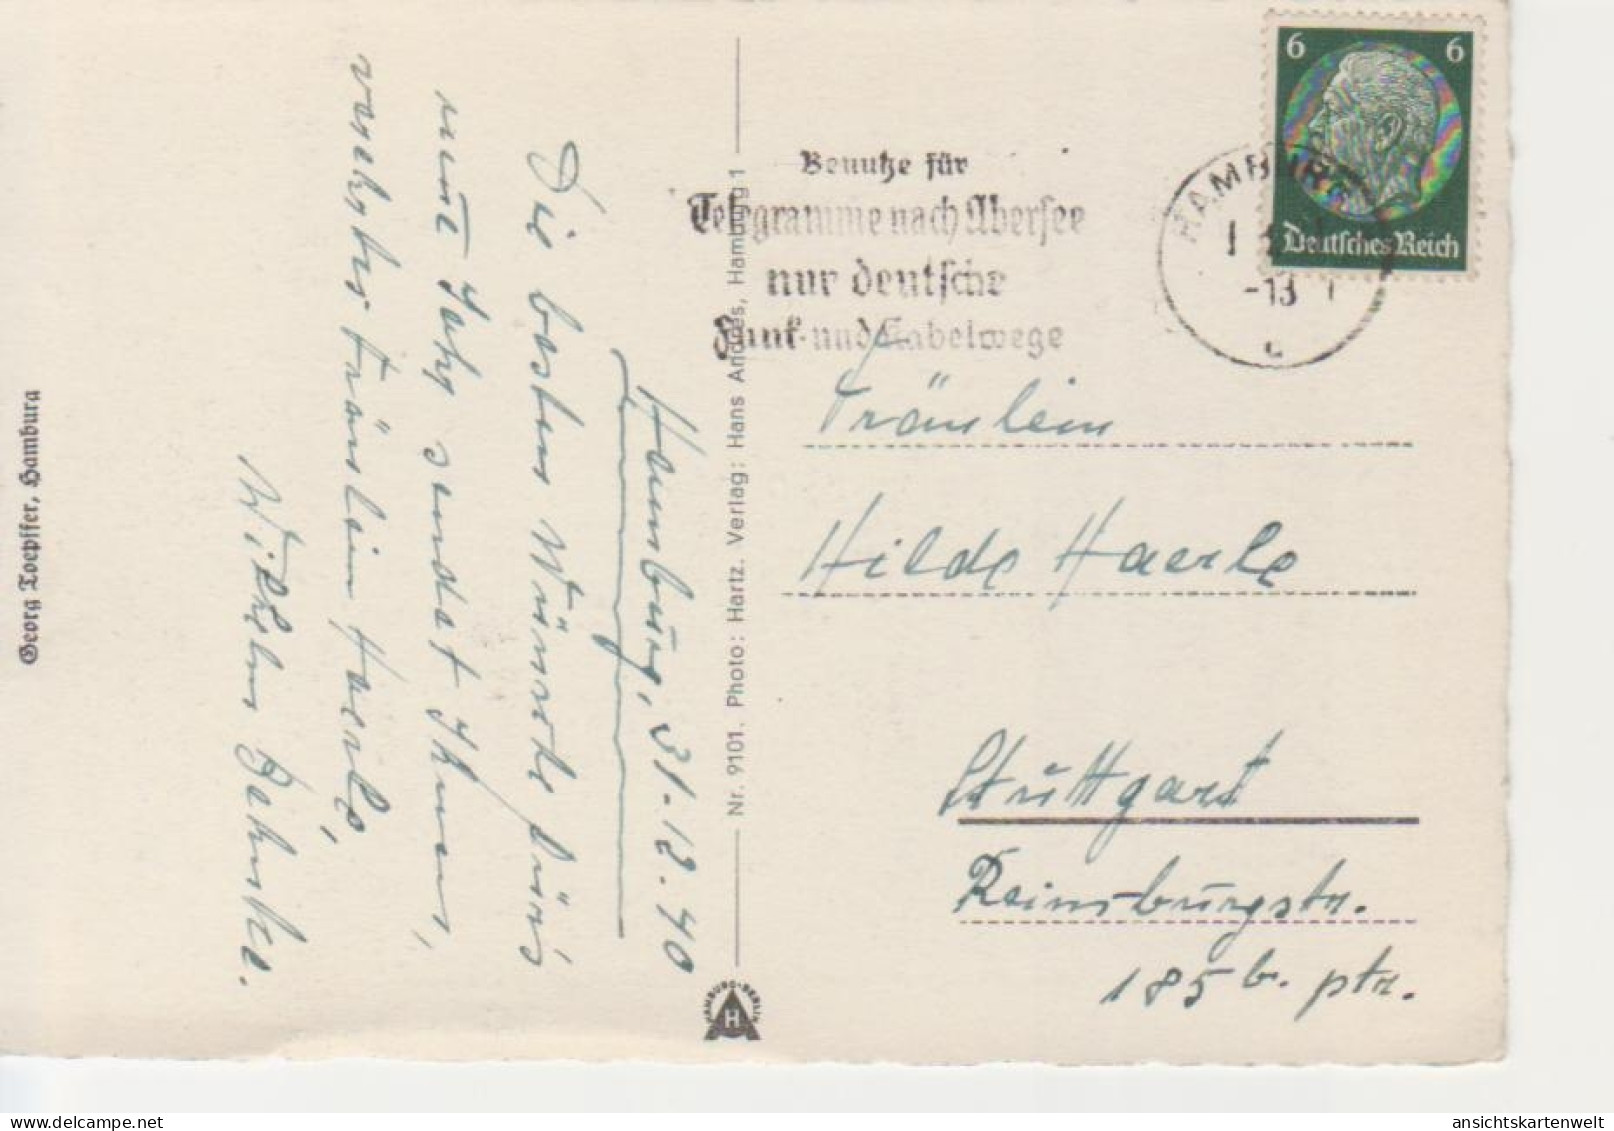 Hamburg, 31.12.40
Die besten Wünsche fürs
neue Jahr sendet Ihnen,
verehrtes Fräulein Haerle,
Wilhelm Jahnke.
Georg Toepffer, Hamburg
Nr. 9101. Photo: Hartz. Verlag: Hans Andres, Hamburg 1
HAMBURG-BERLIN
H
Benutze für
Telegramme nach Übersee
nur deutsche
Funk- und Kabelwege
HAMBURG
-13
6 6
Deutsches Reich
Fräulein
Hilde Haerle
Stuttgart
Reinsburgstr.
185 b. ptr.
delcampe.net
ansichtskartenwelt